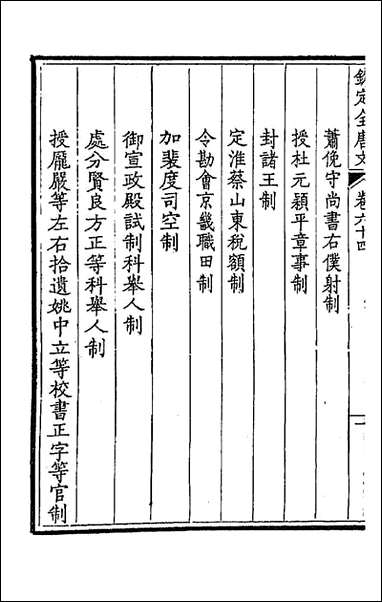 欽定全唐文 卷六十四 一
蕭俛守尚書右僕射制
授杜元穎平章事制
封諸王制
定淮蔡山東稅額制
令勘會京畿職田制
加裴度司空制
御宣政殿試制科舉人制
處分賢良方正等科舉人制
授龐嚴等左右拾遺姚中立等校書正字等官制